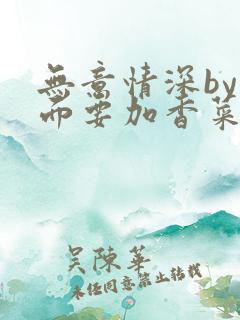 無意情深by
而要加香菜
吴陳華
未任同意禁止转载